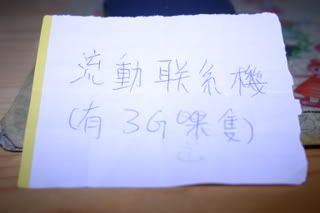 流動联系機
(有3G嘅隻)